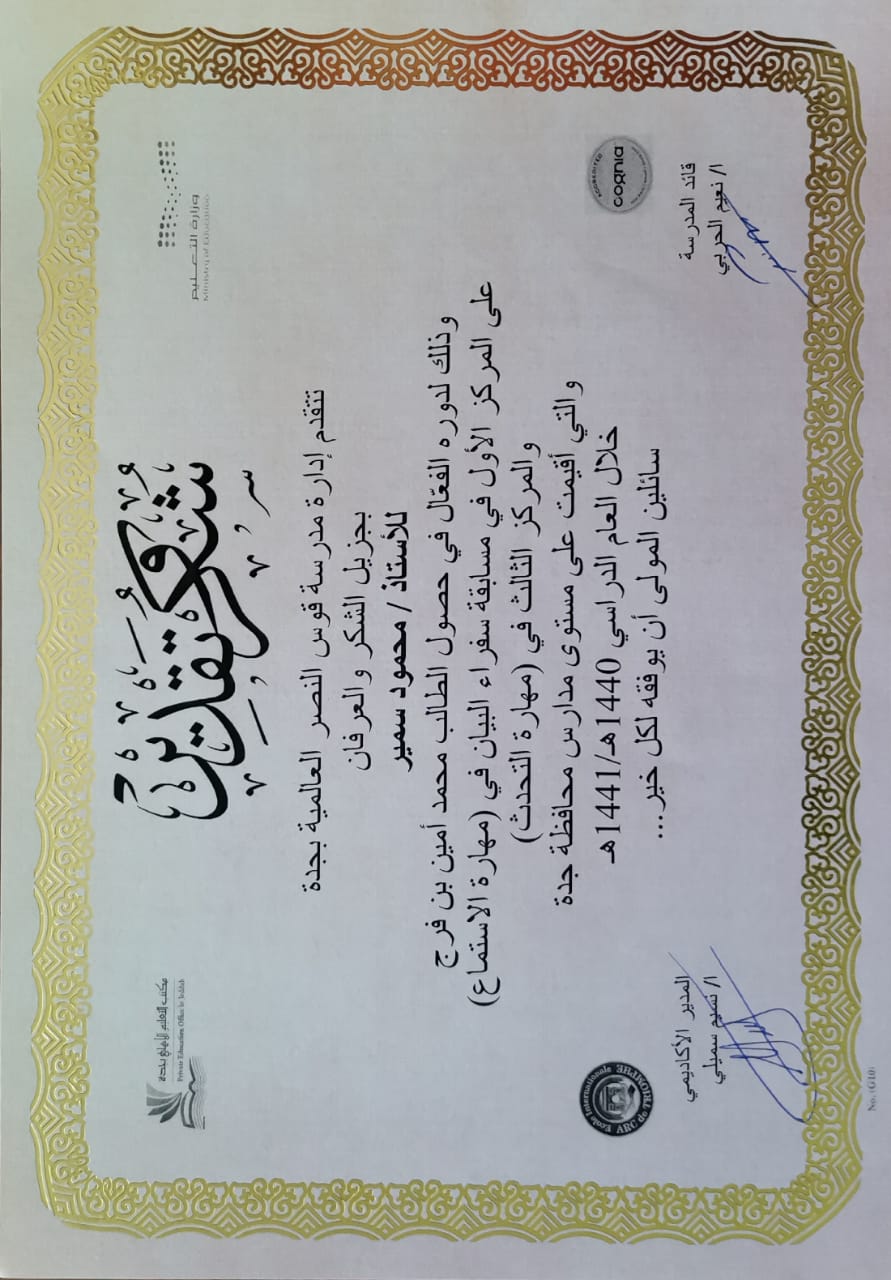 وزارة التعليم
Ministry of Education
مكتب التعليم الأهلي بجدة
Private Education Office in Jeddah
شكر وتقدير
تتقدم إدارة مدرسة قوس النصر العالمية بجدة
بجزيل الشكر والعرفان
للأستاذ / محمود سمير
وذلك لدوره الفعّال في حصول الطالب محمد أمين بن فرج
على المركز الأول في مسابقة سفراء البيان في (مهارة الاستماع)
والمركز الثالث في (مهارة التحدث)
والتي أقيمت على مستوى مدارس محافظة جدة
خلال العام الدراسي 1440هـ/1441هـ
سائلين المولى أن يوفقه لكل خير...
ACCREDITED
cognia
Ecole Internationale
ARC de TRIOMPHE
قائد المدرسة
أ/ نعيم الحربي
المدير الأكاديمي
أ/ نسيم سميلي
No. (G10)